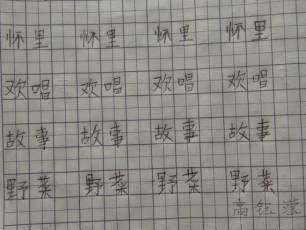 怀里 怀里 怀里 怀里
欢唱 欢唱 欢唱 欢唱
故事 故事 故事 故事
野菜 野菜 野菜 野菜